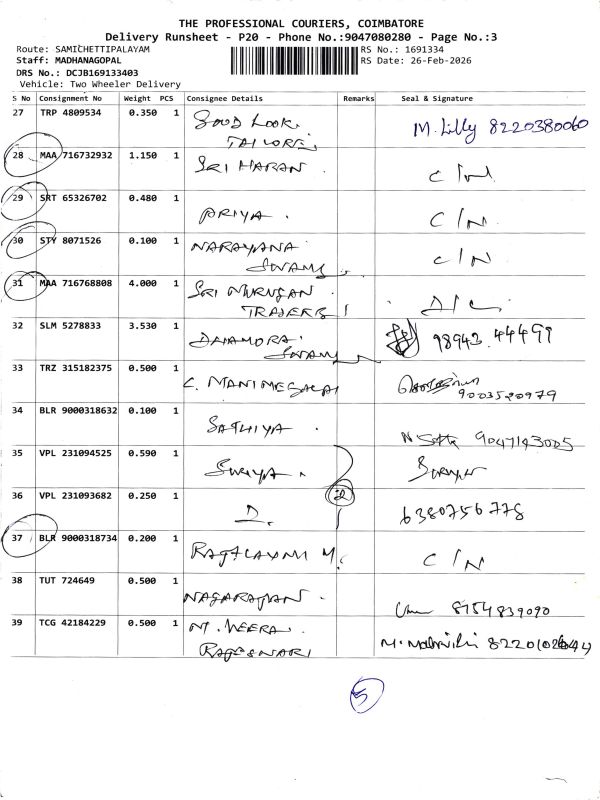 THE PROFESSIONAL COURIERS, COIMBATORE
Delivery Runsheet - P20 - Phone No.:9047080280 - Page No.:3
Route: SAMICHETTIPALAYAM RS No.: 1691334
Staff: MADHANAGOPAL RS Date: 26-Feb-2026
DRS No.: DCJB169133403
Vehicle: Two Wheeler Delivery
S No Consignment No Weight PCS Consignee Details Remarks Seal & Signature
27 TRP 4809534 0.350 1 GOOD LOOK. M. Lilly 8220380060
TAILORE
28 MAA 716732932 1.150 1 SRI HARAN. C/N
29 SRT 65326702 0.480 1 PRIYA. C/N
30 STY 8071526 0.100 1 NARAYANA C/N
SWAMY
31 MAA 716768808 4.000 1 SRI MURUGAN D/C
TRADERS
32 SLM 5278833 3.530 1 98943 44499
SWAMY
33 TRZ 315182375 0.500 1 C. MANIMEGALAI
9003520979
34 BLR 9000318632 0.100 1 SATHIYA. 9047143005
35 VPL 231094525 0.590 1 SURIYA.
36 VPL 231093682 0.250 1 D. 2 6380756778
37 BLR 9000318734 0.200 1 RAJALAXMI M. C/N
38 TUT 724649 0.500 1 NAGARAJAN. 8754839090
39 TCG 42184229 0.500 1 M. MEERA.
RAJESWARI
5